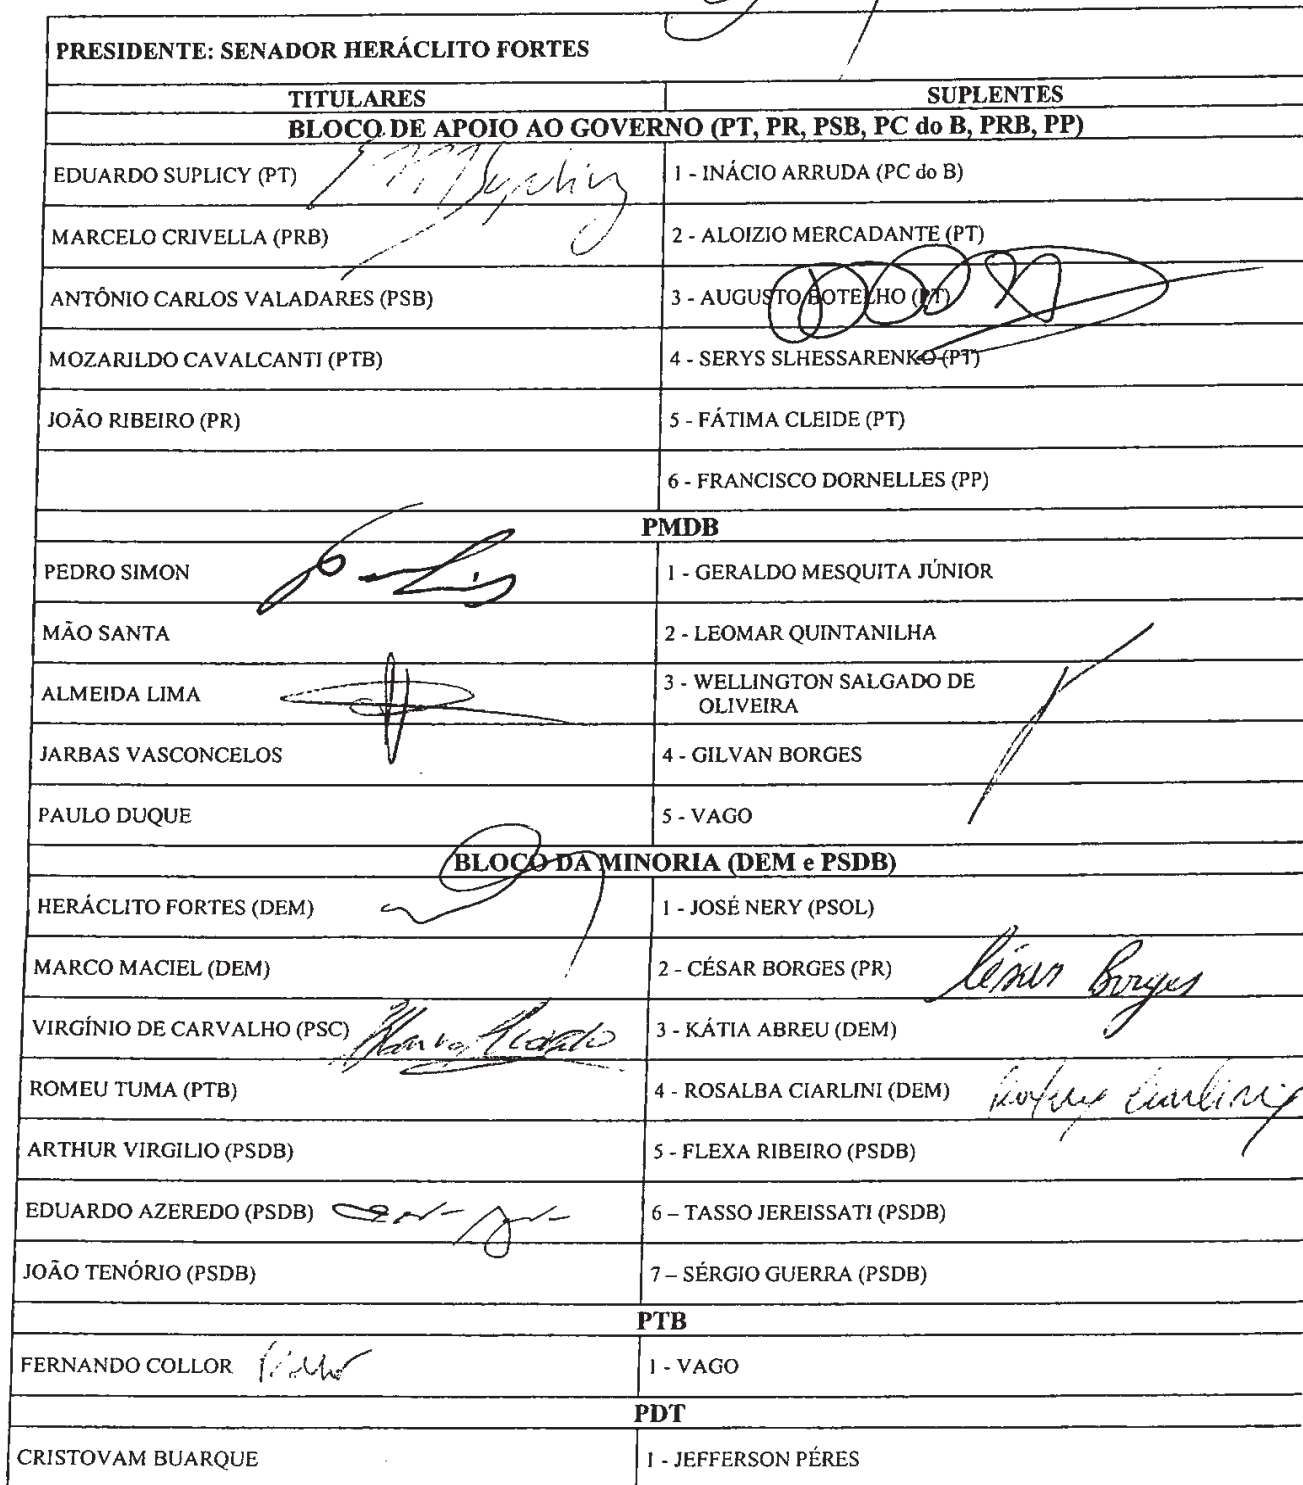 PRESIDENTE: SENADOR HERÁCLITO FORTES
TITULARES SUPLENTES
BLOCO DE APOIO AO GOVERNO (PT, PR, PSB, PC do B, PRB, PP)
EDUARDO SUPLICY (PT) 1 - INÁCIO ARRUDA (PC do B)
MARCELO CRIVELLA (PRB) 2 - ALOIZIO MERCADANTE (PT)
ANTÔNIO CARLOS VALADARES (PSB) 3 - AUGUSTO BOTELHO (PT)
MOZARILDO CAVALCANTI (PTB) 4 - SERYS SLHESSARENKO (PT)
JOÃO RIBEIRO (PR) 5 - FÁTIMA CLEIDE (PT)
6 - FRANCISCO DORNELLES (PP)
PMDB
PEDRO SIMON 1 - GERALDO MESQUITA JÚNIOR
MÃO SANTA 2 - LEOMAR QUINTANILHA
ALMEIDA LIMA 3 - WELLINGTON SALGADO DE
OLIVEIRA
JARBAS VASCONCELOS 4 - GILVAN BORGES
PAULO DUQUE 5 - VAGO
BLOCO DA MINORIA (DEM e PSDB)
HERÁCLITO FORTES (DEM) 1 - JOSÉ NERY (PSOL)
MARCO MACIEL (DEM) 2 - CÉSAR BORGES (PR) César Borges
VIRGÍNIO DE CARVALHO (PSC) 3 - KÁTIA ABREU (DEM)
ROMEU TUMA (PTB) 4 - ROSALBA CIARLINI (DEM)
ARTHUR VIRGILIO (PSDB) 5 - FLEXA RIBEIRO (PSDB)
EDUARDO AZEREDO (PSDB) 6 – TASSO JEREISSATI (PSDB)
JOÃO TENÓRIO (PSDB) 7 – SÉRGIO GUERRA (PSDB)
PTB
FERNANDO COLLOR 1 - VAGO
PDT
CRISTOVAM BUARQUE 1 - JEFFERSON PÉRES